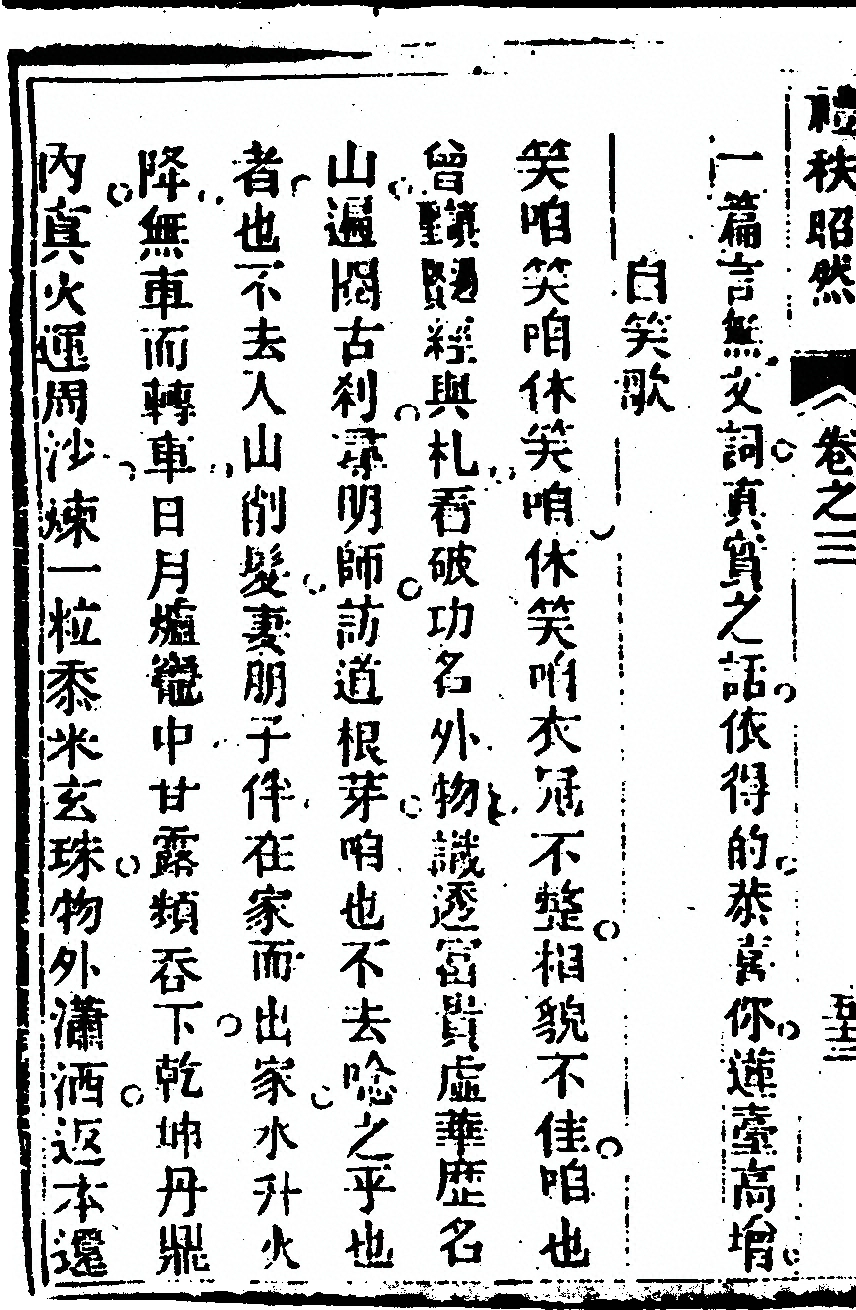 禮秩昭然 卷之三 五十三
一篇言無文詞真實之話依得的恭喜你蓮臺高增
自笑歌
笑咱笑咱休笑咱休笑咱衣冠不整相貌不佳咱也
曾讀過聖賢經與札看破功名外物識透富貴虛華歷名
山遍閱古刹尋明師訪道根芽咱也不去唸之乎也
者也不去入山削髮妻朋子伴在家而出家水升火
降無車而轉車日月爐竈中甘露頻吞下乾坤丹鼎
內真火運周沙煉一粒黍米玄珠物外瀟洒返本還